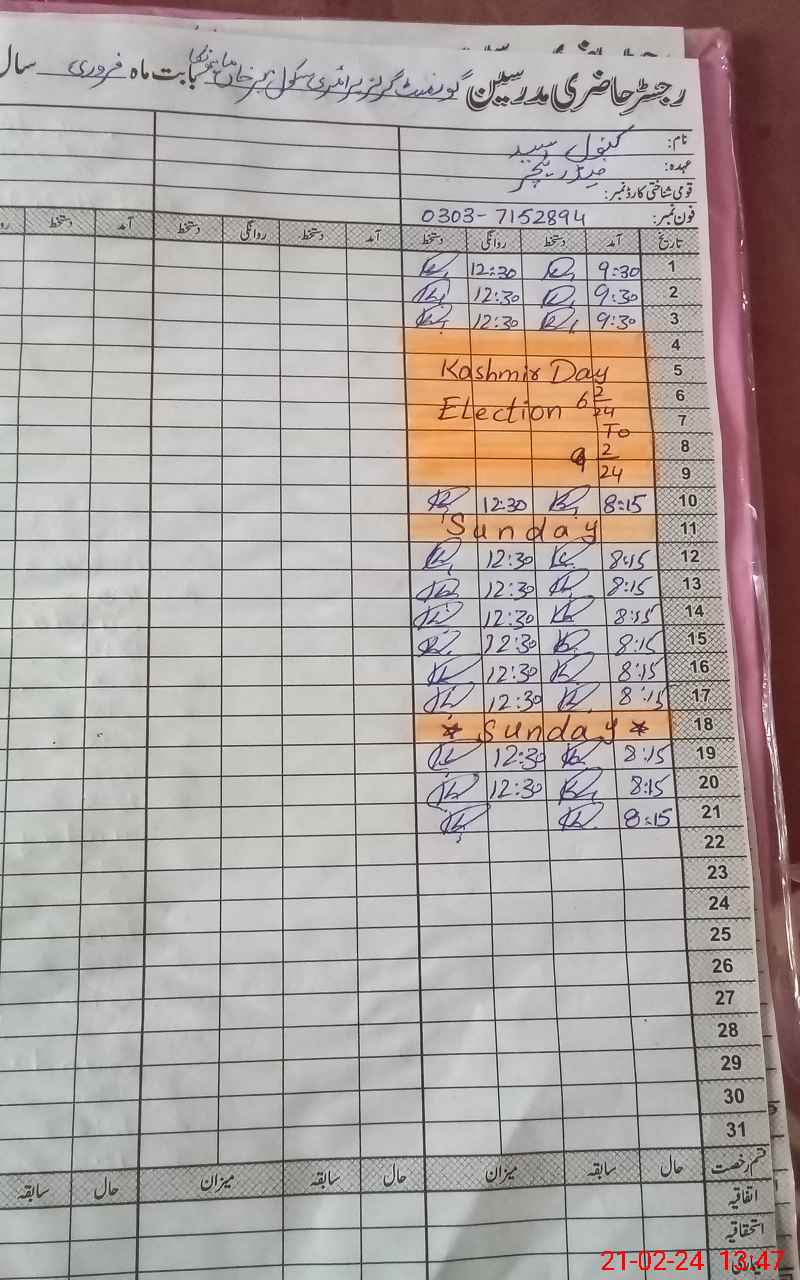 رجسٹر حاضری مدرسین گورنمنٹ گرلز پرائمری سکول ببر خان بابت ماہ فروری سال
نام: کنول
عہدہ: ہیڈ ٹیچر
قومی شناختی کارڈ نمبر:
فون نمبر: 0303-7152894
تاریخ آمد دستخط روانگی دستخط آمد دستخط روانگی دستخط آمد دستخط
1 9:30 12:30
2 9:30 12:30
3 9:30 12:30
4
5 Kashmir Day
6 Election 6 2/24
7 To
8 9 2/24
9
10 8:15 12:30
11 Sunday
12 8:15 12:30
13 8:15 12:30
14 8:15 12:30
15 8:15 12:30
16 8:15 12:30
17 8:15 12:30
18 * Sunday *
19 8:15 12:30
20 8:15 12:30
21 8:15
22
23
24
25
26
27
28
29
30
31
قسم رخصت حال سابقہ میزان حال سابقہ میزان حال سابقہ
اتفاقیہ
استحقاقیہ
21-02-24 13:47